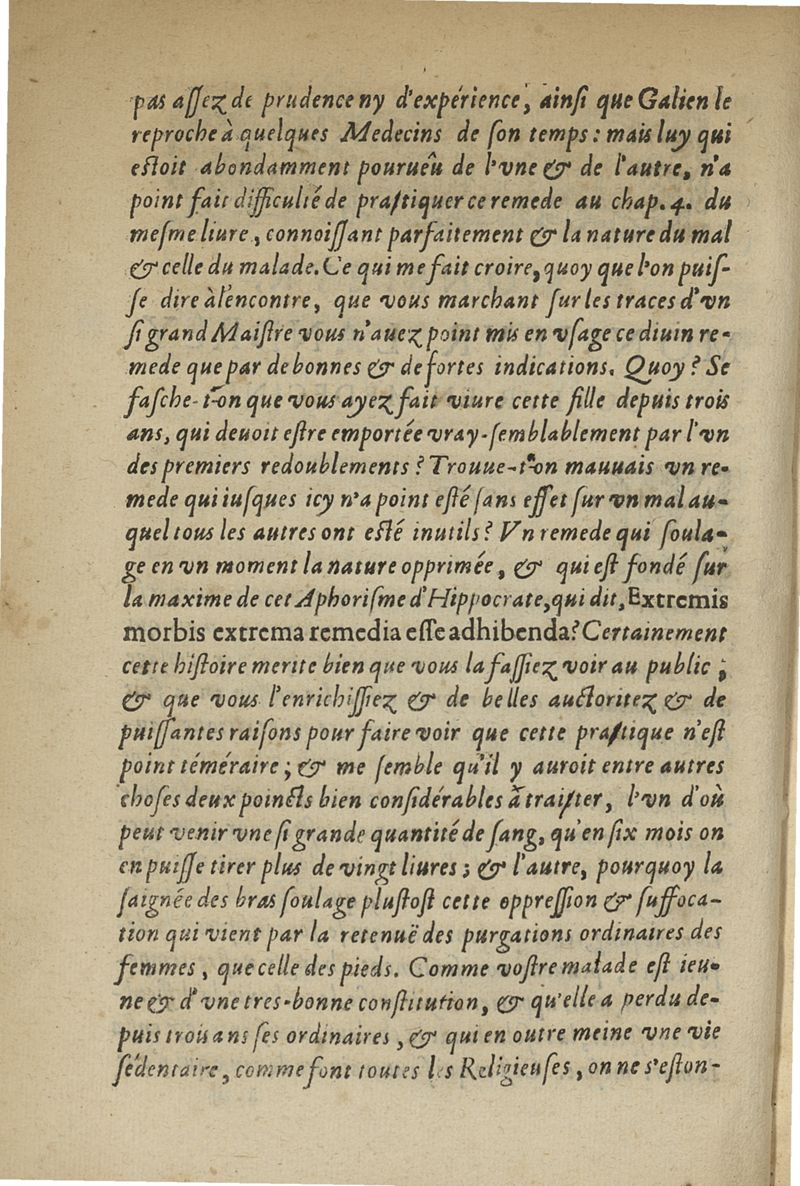 pas aſſez de prudence ny d'expérience, ainſi que Galien le
reproche à quelques Medecins de ſon temps: mais luy qui
eſtoit abondamment pourueû de l'vne & de l'autre, n'a
point fait difficulté de practiquer ce remede au chap. 4. du
meſme liure, connoiſſant parfaitement & la nature du mal
& celle du malade. Ce qui me fait croire, quoy que l'on puiſ-
ſe dire à l'encontre, que vous marchant ſur les traces d'vn
ſi grand Maiſtre vous n'auez point mis en vſage ce diuin re-
mede que par de bonnes & de fortes indications. Quoy? Se
faſche-t'on que vous ayez fait viure cette fille depuis trois
ans, qui deuoit eſtre emportée vray-ſemblablement par l'vn
des premiers redoublements? Trouue-t'on mauuais vn re-
mede qui iuſques icy n'a point eſté ſans effet ſur vn mal au-
quel tous les autres ont eſté inutils? Vn remede qui ſoula-
ge en vn moment la nature opprimée, & qui eſt fondé ſur
la maxime de cet Aphoriſme d'Hippocrate, qui dit, Extremis
morbis extrema remedia eſſe adhibenda? Certainement
cette hiſtoire merite bien que vous la faſſiez voir au public;
& que vous l'enrichiſſiez & de belles auctoritez & de
puiſſantes raiſons pour faire voir que cette practique n'eſt
point téméraire; & me ſemble qu'il y auroit entre autres
choſes deux poincts bien conſidérables à traicter, l'vn d'où
peut venir vne ſi grande quantité de ſang, qu'en ſix mois on
en puiſſe tirer plus de vingt liures; & l'autre, pourquoy la
ſaignée des bras ſoulage pluſtoſt cette oppreſſion & ſuffoca-
tion qui vient par la retenuë des purgations ordinaires des
femmes, que celle des pieds. Comme voſtre malade eſt ieu-
ne & d'vne tres-bonne conſtitution, & qu'elle a perdu de-
puis trois ans ſes ordinaires, & qui en outre meine vne vie
ſédentaire, comme font toutes les Religieuſes, on ne s'eſton-